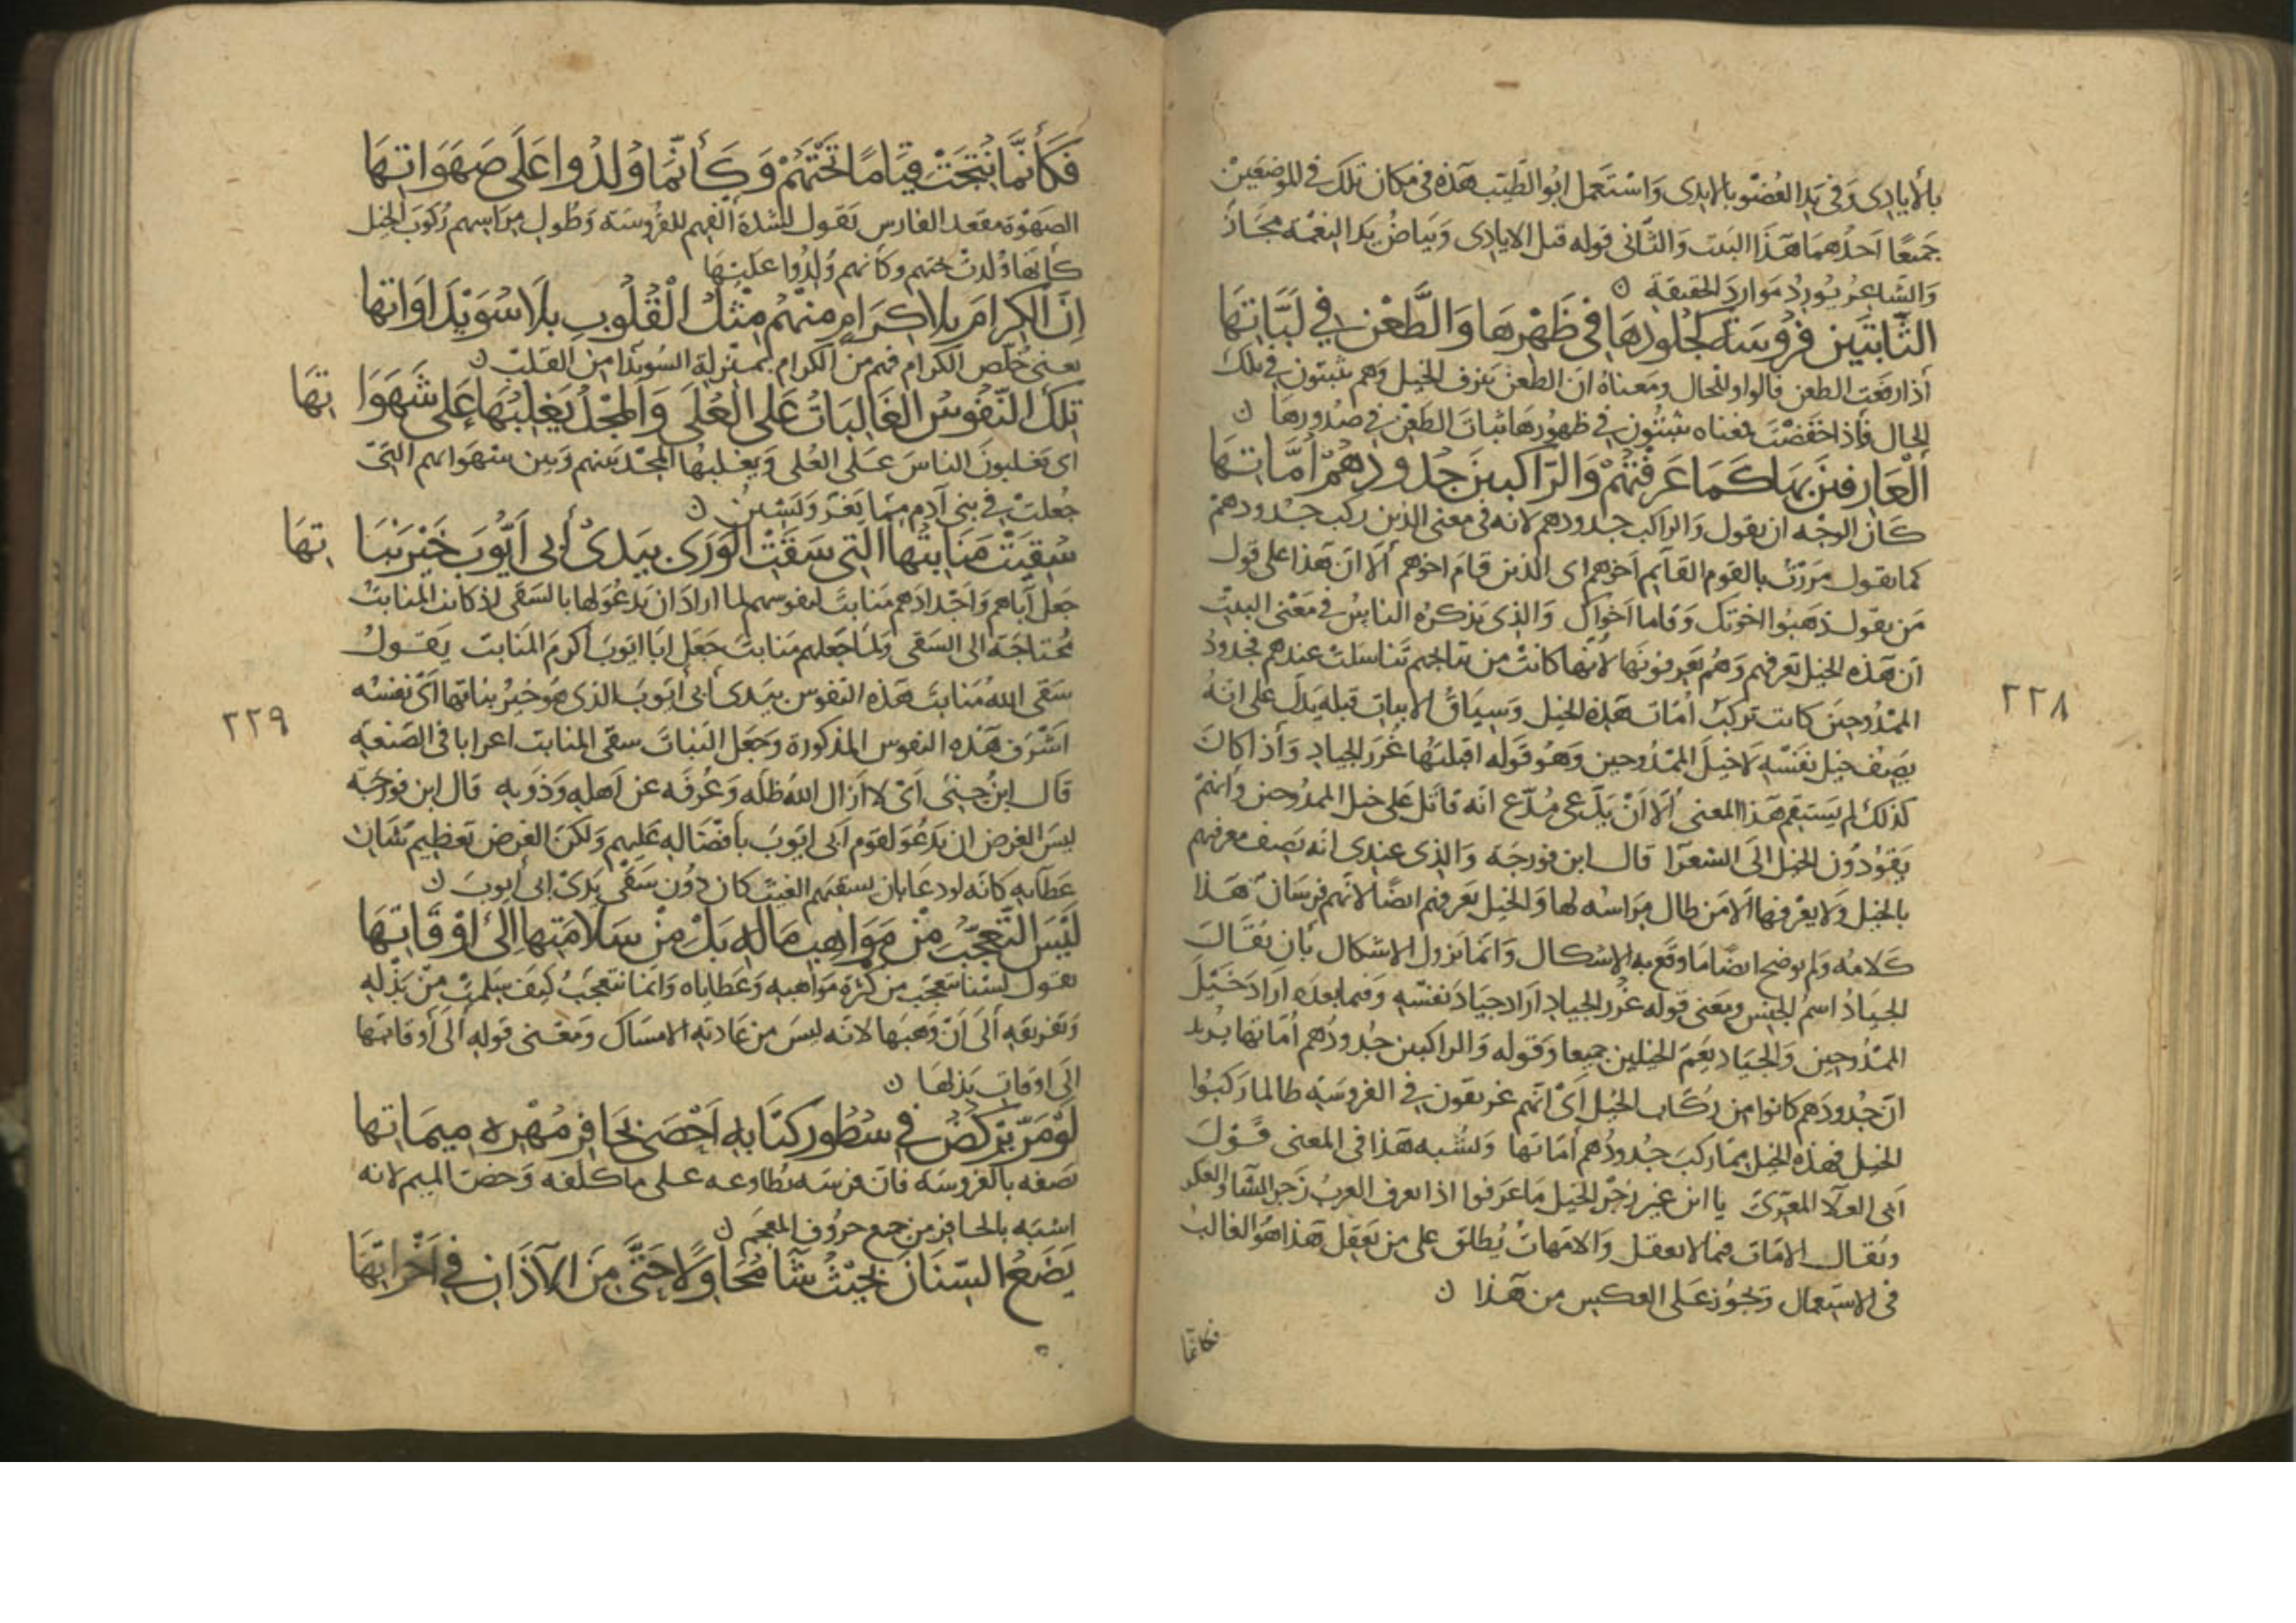 بالأيادى وَفى يَدِ العُضْو بالايدى وَاسْتَعمل ابُو الطَيّب هَذه فى مكان تلك فى الموضِعَيْن
جَميعًا اَحدُهمَا هَذَا البَيت وَالثّانى قوله قبل الايادى وَبيَاضُ يَدِ النِعْمَة مَجَاز
وَالشَاعِرُ يُورِدُ مَوَارِدَ الحَقيقَة ن
الثَّابِتَين فُرُوسَةً كَجُلُودِهَا فى ظَهْرِهَا وَالطَّعْن فِي لَبَّاتِهَا
أذا رفَعت الطعن فالواو للحَال ومَعناهُ انَ الطعْنَ يَنزف الخيل وَهم يثبتون فى تلك
الحال فَأِذا خفَضْتَ فمعناه يثبتُون فى ظهُورهَا ثبات الطَعْن فى صُدُورِهَا ن
أَلْعَارِفِينَ بهَا كَمَا عَرفْتَهُمْ وَالرَّاكِبِينَ جُدُودُهُمْ أُمَّاتِهَا
كَانَ الوجْه ان يقول وَالراكب جدودهم لانه فى معنى الذين ركب جدودهم
كما يقول مَرَرْتُ بالقوم القَآيم اَخوهم اى الذين قام اخوهم أَلَّا انَ هَذا على قول
مَن يقول ذهَبُوا اخوتك وَقاما اَخواك وَالذى يذكرُه النَاسُ فى مَعْنى البيت
أن هَذه الخيل تعرفهم وَهُم يَعرفونهَا لأنها كانتْ من نتاجهم تَناسَلت عندهم فجدودُ
الممْدُوحِين كانت تركبُ أمّات هَذه الخيل وَسِيَاقُ الابيات قبله يَدل على انَهُ
يَصِفُ خيل نفسه لَا خيل الممْدُوحين وَهُو قَوله اقبلتهَا غُرَر الجياد وَأذا كانَ
كَذلكَ لم يَستَقِم هَذا المعنى أَلَّا أنْ يَدَّعى مُدّع انَه قاتل على خيل الممدُوحين وَأنهمْ
يَقُودُون الخيل الَى الشعرآ قال ابن فورجَة وَالذى عندى انَه يَصف معرفتهم
بالخيل وَلا يعْرفهَا الّا من طال مراسُه لها وَالخيل تعرفهم ايضًا لانهم فرسَان هَذا
كَلامُه وَلم يوضح ايضًا مَا وقَع به الاشكال وَانما يَزول الاشكال بأن يُقَالَ
الجيَادُ اسمُ الجنس ومَعنى قوله غُرَر الجياد ارَاد جيَادَ نفسه وَفيما بعده ارَاد خَيْلَ
الممْدُوحِين وَالجيَاد يَعُمّ الخيلين جميعا وَقوله وَالراكبين جُدُودُهم أمّاتها يُريد
انَ جُدُودَهم كانوا من رُكَّاب الخيل أَىْ انّهم غريقون فى الفروسَية طالما ركبُوا
الخيل فهذه الخيل ممَّا ركبَ جُدُودُهم أمّاتها وَيُشبه هَذا فى المعنى قَولَ
اَبى العَلآ المعَرّىّ يا ابن غير زَجْر الخيل مَا عَرفوا اذا تعرف العربُ زَجر الشآ والعكر
ويُقال الامّات فيما لا يعقل وَالامّهات يُطلق على من يَعقِل هَذا هُوَ الغالبُ
فى الاستعمال وَيجُوزُ عَلى العكس من هَذا ن
فكأنما
٢٢٨
فَكَأَنَّمَا نُتِجَتْ قِيَامًا تَحْتَهُمْ وَكَأَنَّمَا وُلِدُوا عَلَى صَهَوَاتِهَا
الصَهْوَة مقعد الفارس يَقول لشدة أُلْفهم للفرُوسَة وَطُول مِرَاسهم ركُوبَ الخيل
كأنّهَا وُلدتْ تحتهم وكأنهم وُلِدُوا عَلَيْهَا
اِنَّ الكِرَامَ بِلَا كِرَامٍ مِنْهُمْ مِثْلُ الْقُلُوبِ بِلَا سُوَيْدَاوَاتِهَا
يعنى خُلّص الكرام فهم منَ الكرام بمنزلة السُويدا من القَلب ن
تِلْكَ النُّفُوسُ الغَالِبَاتُ عَلَى العُلَى وَالمَجْدُ يَغْلِبُهَا عَلَى شَهَوَا تِهَا
اى يَغلبونَ الناسَ عَلى العُلى وَيغلبُها المجْد بَينهم وَبين شهَواتهم التى
جُعلتْ فى بنى آدم ممّا يَغُرّ وَيَشين ن
سُقِيَتْ مَنَابِتُهَا الَّتِي سَقَتْ الوَرَى بِيَدَىْ أَبِى أَيُّوبَ خَيْرِ نَبَا تِهَا
جَعل آباهم وَاجدادَهم مَنابتَ لنفوسهم لما ارادَ ان يَدعُوَ لها بالسَقى اذ كانت المنابتُ
مُحتاجَة الى السَقى وَلمّا جَعلهم مَنابتَ جَعَل ابَا ايّوبَ اكرم المَنابت يَقولُ
سَقى اللهُ مَنابتَ هَذه النفوس بيَدى أبى أيّوبَ الذى هوَ خيرُ نباتها أىْ نفسُه
اَشْرَف هَذه النفوس المذكورة وَجَعَل النَباتَ سقى المنابت اغرابا فى الصَنعَة
قَالَ ابنُ جنى أىْ لا ازَال اللهُ ظلّه وَعُرفَه عن اهله وَذويه قال ابن فورجّة
ليسَ الغرض ان يَدعُوَ لقوم اَبى ايّوبَ بافضَاله عَليهم وَلكنّ الغرض تعظيم شَان
عَطَآيه كانّه لو دعَا بان يسقيهم الغيث كان دُونَ سَقْى يَدَىْ ابى أيوبَ ن
لَيْسَ التَّعَجُّبُ مِنْ مَوَاهِبِ مَالِهِ بَلْ مِنْ سَلَامَتِهَا اِلَى اَوْقَاتِهَا
يقول لسْنا نتعَجّب من كثرة مَوَاهبه وَعَطاياه وَانما نتعجّبُ كيفَ سلمتْ من بَذْله
وَتفريقه أَلى أنْ وَهَبهَا لانه ليسَ من عَادته الامسَاك وَمَعْنى قوله أَلى أوقاتها
الى اوقات بَذلهَا ن
لَوْ مَرَّ يَرْكُضُ فِي سُطُورِ كِتَابَةٍ اَحْصَى بحَافِرِ مُهْرِهِ مِيمَاتِهَا
يَصفه بالفروسَة فانّ فرسَه يُطاوعه على ما كلّفه وَخصّ الميم لانه
اشبَه بالحافر من جميع حرُوف المعجَم ن
يَضَعُ السِّنَانَ بحَيْثُ شَآ مُحَاوِلًا حَتَّى مِنَ الآذَانِ فِي اَخْرَاتِهَا
٢٢٩